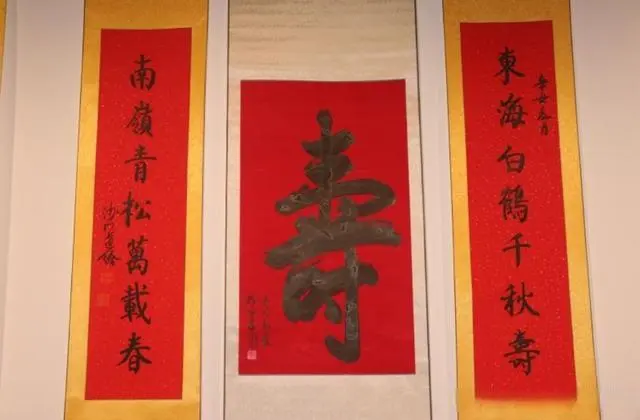 東海白鶴千秋壽
壽
南嶺青松萬載春